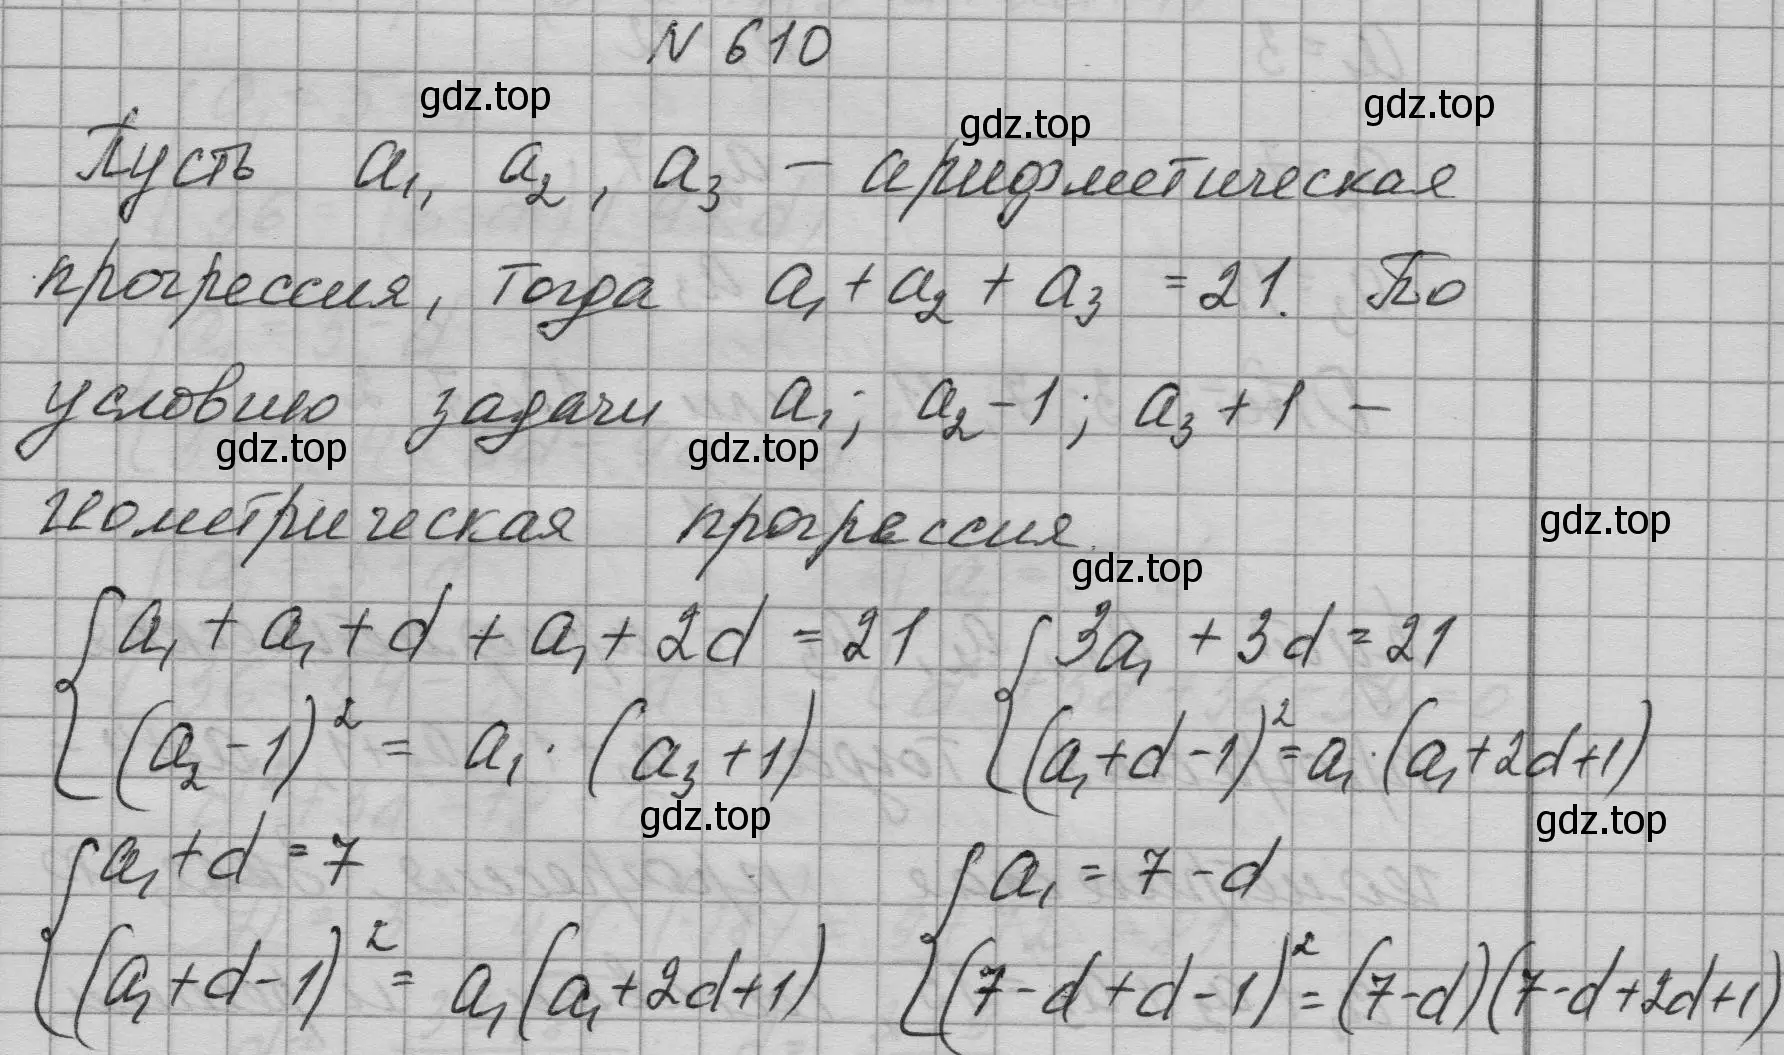 N 610
gdz.top
gdz.top
gdz.top
Пусть a₁, a₂, a₃ – арифметическая
прогрессия, тогда a₁ + a₂ + a₃ = 21. По
условию задачи a₁; a₂ - 1; a₃ + 1 –
gdz.top
gdz.top
геометрическая прогрессия.
gdz.top
gdz.top
{ a₁ + a₁ + d + a₁ + 2d = 21 { 3a₁ + 3d = 21
(a₂ - 1)² = a₁ · (a₃ + 1) (a₁ + d - 1)² = a₁ · (a₁ + 2d + 1)
gdz.top
gdz.top
{ a₁ + d = 7 { a₁ = 7 - d
(a₁ + d - 1)² = a₁(a₁ + 2d + 1) (7 - d + d - 1)² = (7 - d)(7 - d + 2d + 1)